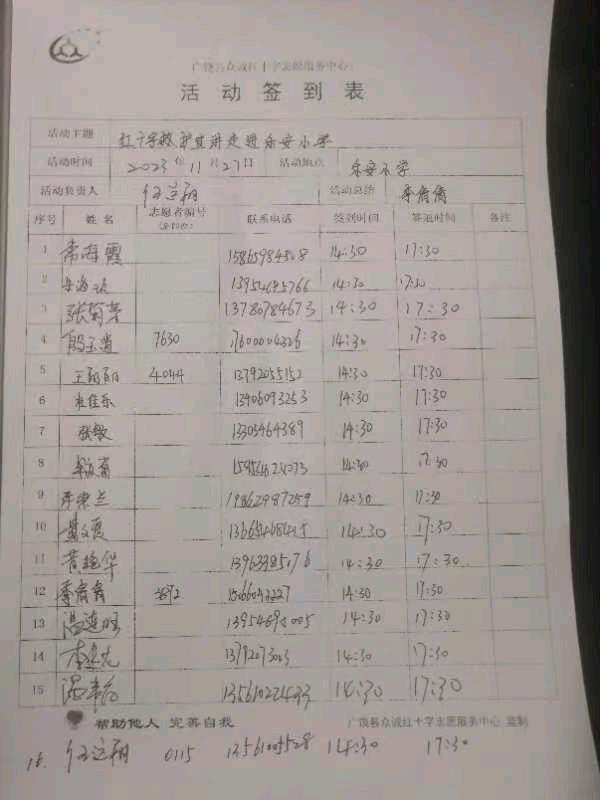 广饶县众诚红十字志愿服务中心
活动签到表
活动主题 红十字救护宣讲走进乐安小学
活动时间 2023年11月27日 活动地点 乐安小学
活动负责人 任立翔 活动总结 李倩倩
序号 姓名 志愿者编号 联系电话 签到时间 签退时间 备注
1 常海霞 14:30 17:30
2 13954695766 14:30 17:30
3 张菊芳 13780784673 14:30 17:30
4 殷玉道 7630 17600004326 14:30 17:30
5 王丽丽 4044 13792055152 14:30 17:30
6 崔佳乐 13406093253 14:30 17:30
7 张敏 13305464389 14:30 17:30
8 14:30 17:30
9 19862987259 14:30 17:30
10 14:30 17:30
11 黄艳华 14:30 17:30
12 李倩倩 14:30 17:30
13 温连旺 14:30 17:30
14 14:30 17:30
15 13561022433 14:30 17:30
帮助他人 完善自我 广饶县众诚红十字志愿服务中心 监制
16. 任立翔 0115 13561005528 14:30 17:30